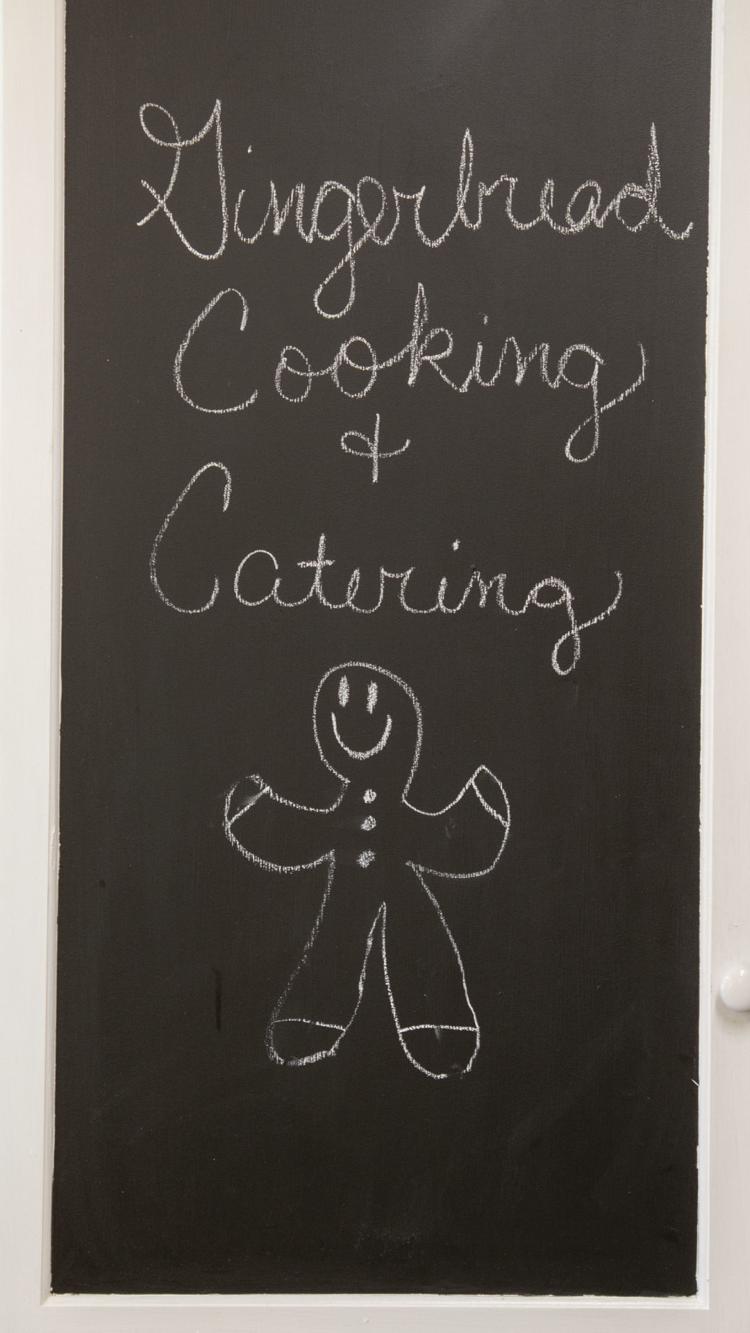 Gingerbread
Cooking
+
Catering